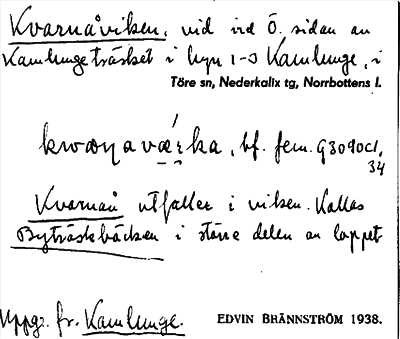 Kvarnåviken, vid in i Ö. sidan av
Kamlungeträsket i byn 1-3 Kamlunge, i
Töre sn, Nederkalix tg, Norrbottens l.
bf. fem.
34
Kvarnån utfaller i viken. Kallas
Byträskbäcken i större delen av loppet
Uppg. fr. Kamlunge.
EDVIN BRÄNNSTRÖM 1938.